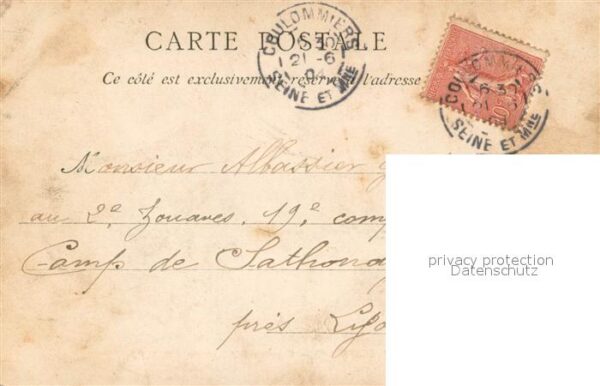 CARTE POSTALE
Ce côté est exclusivement réservé à l'adresse
COULOMMIERS
21-6
SEINE ET MNE
COULOMMIERS
SEINE ET MNE
Monsieur Albassier
au 2e Zouaves. 19e comp
Camp de Sathona
près Lyo
privacy protection
Datenschutz